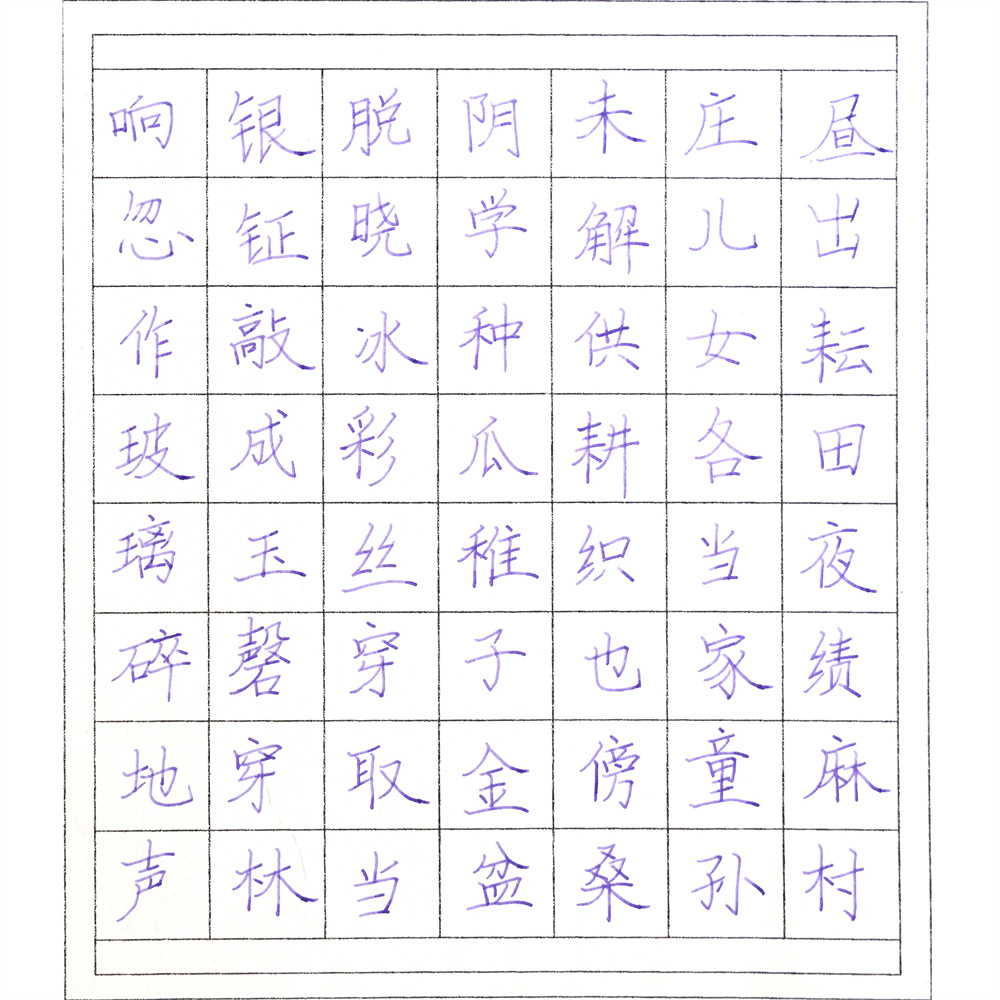 昼出耘田夜绩麻村
庄儿女各当家童孙
未解供耕织也傍桑
阴学种瓜稚子金盆
脱晓冰彩丝穿取当
银钲敲成玉磬穿林
响忽作玻璃碎地声